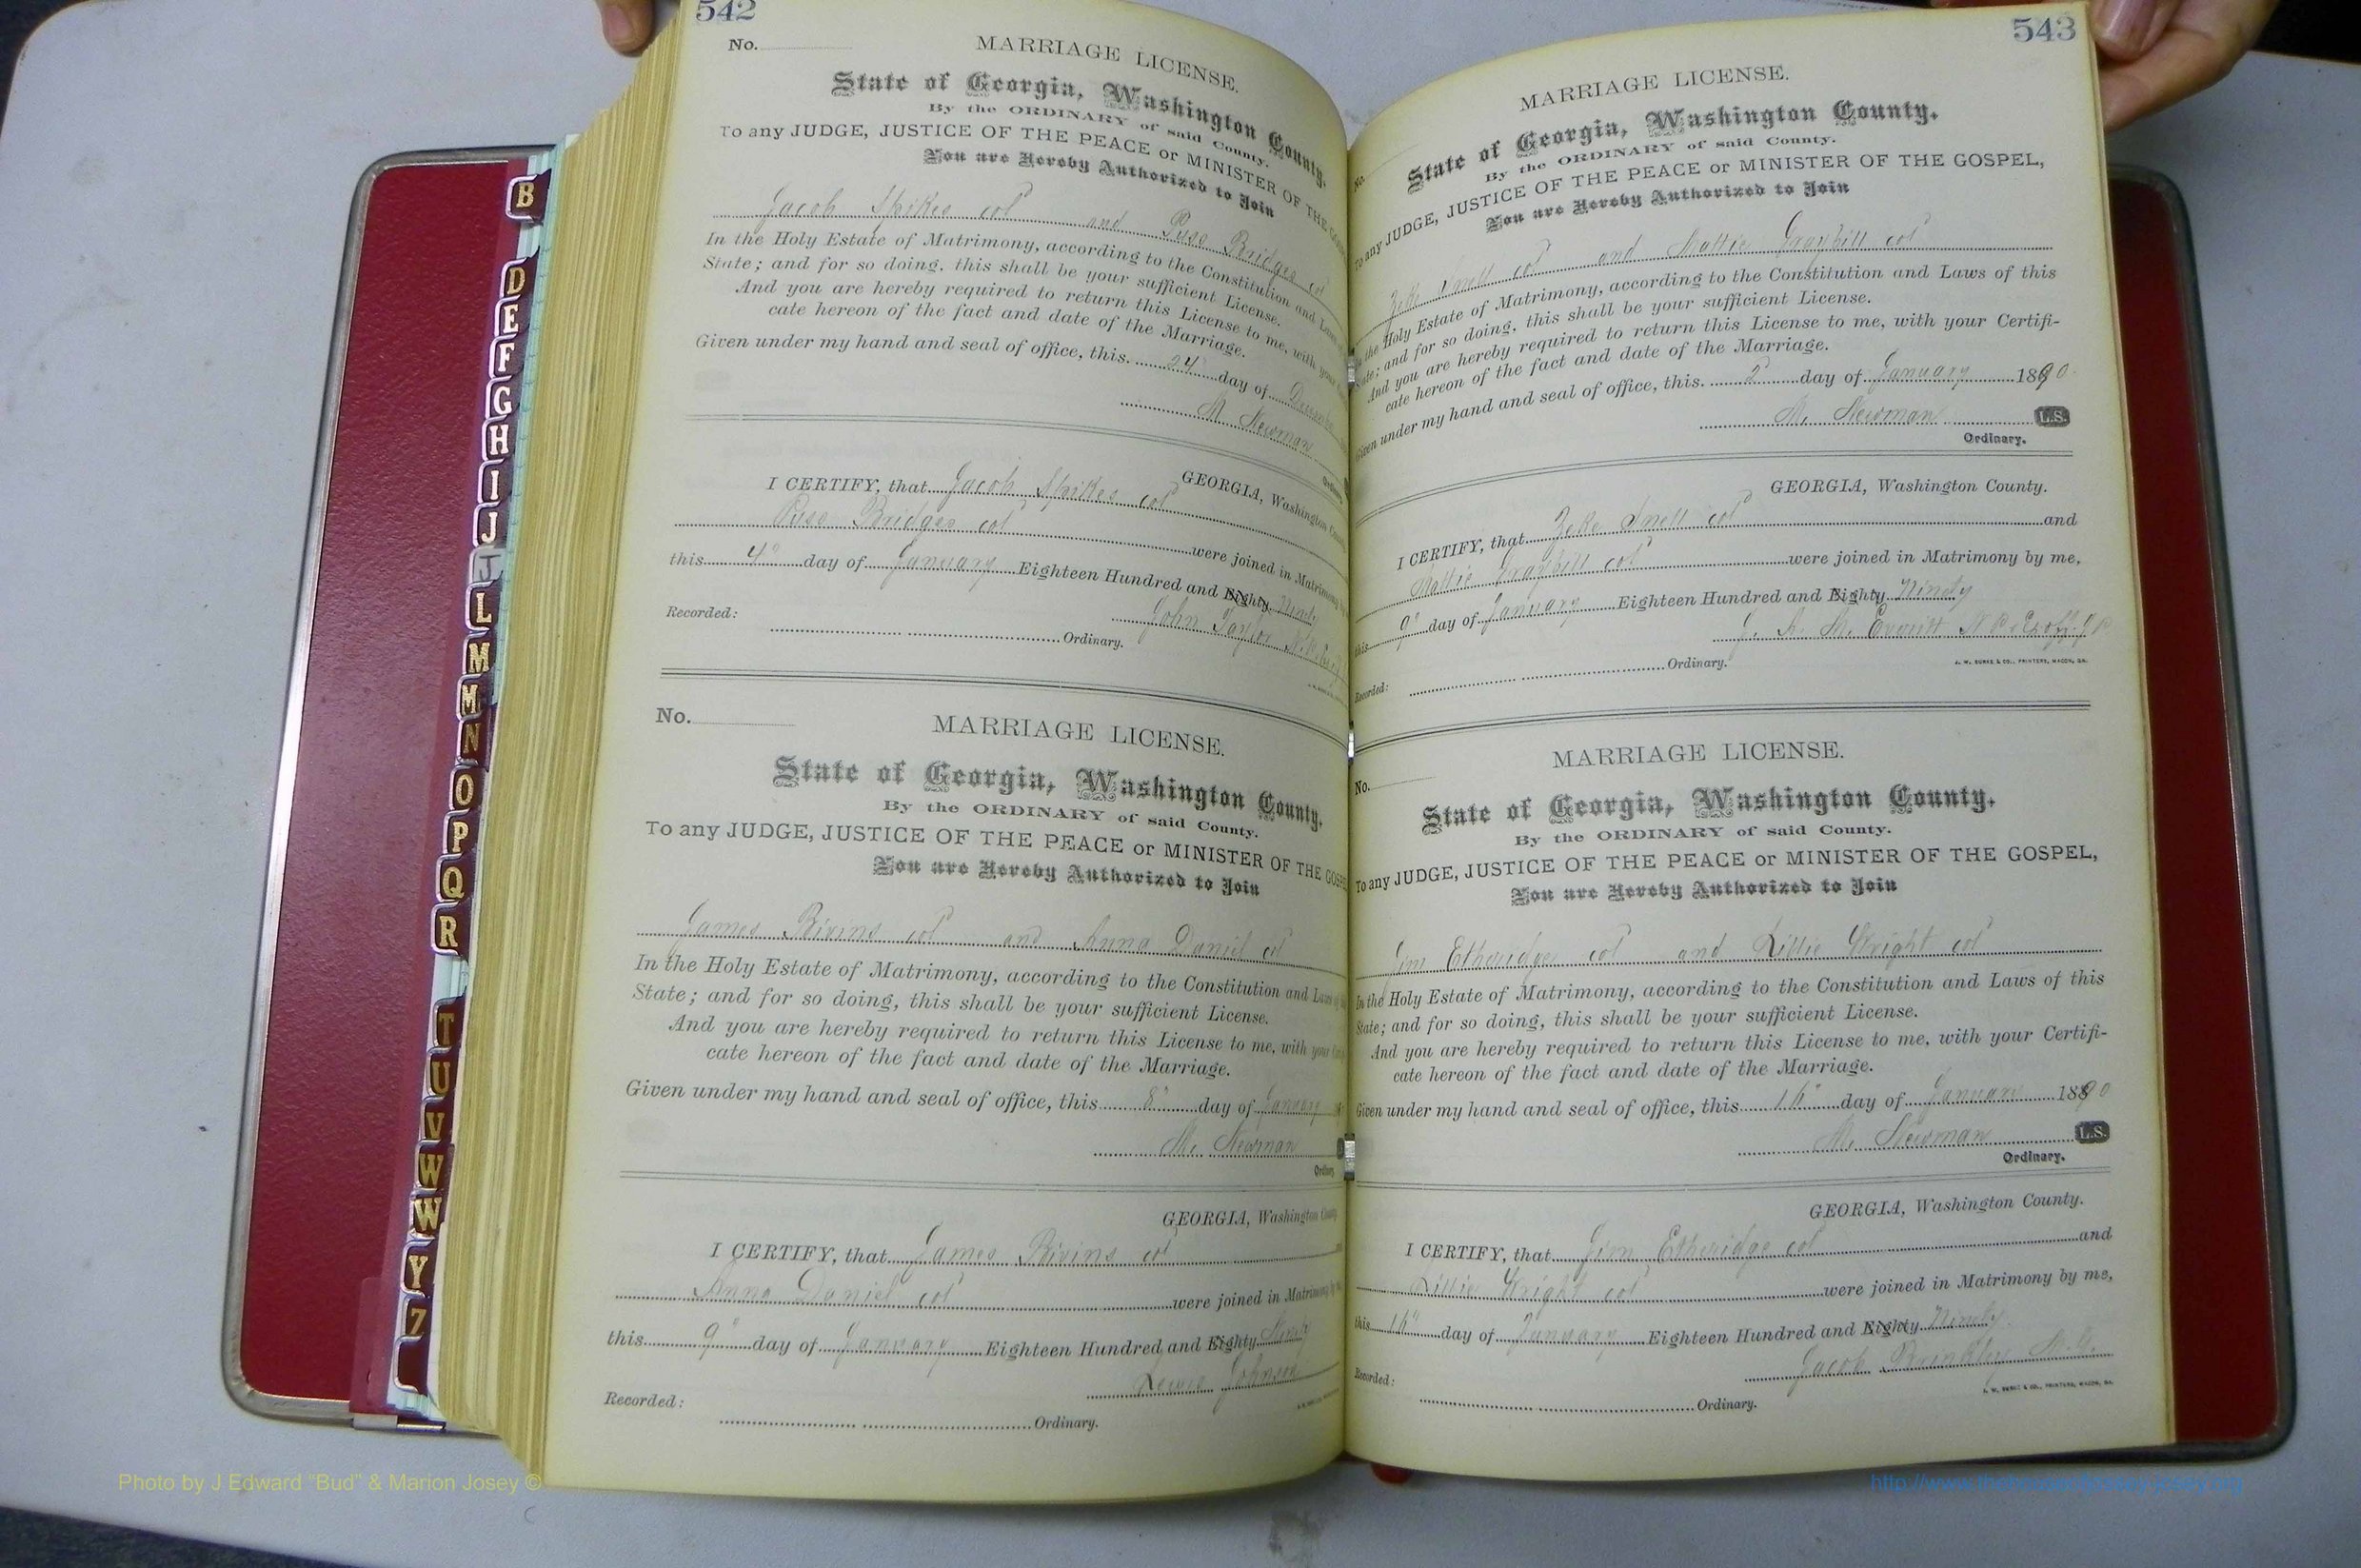 542
No.
MARRIAGE LICENSE.
State of Georgia, Washington County.
By the ORDINARY of said County.
To any JUDGE, JUSTICE OF THE PEACE or MINISTER OF THE
You are Hereby Authorized to Join
Jacob Spikes col and Bridges col
In the Holy Estate of Matrimony, according to the Constitution and Laws
State; and for so doing, this shall be your sufficient License.
And you are hereby required to return this License to me, with your
cate hereon of the fact and date of the Marriage.
Given under my hand and seal of office, this 24 day of
M. Newman
GEORGIA, Washington County
I CERTIFY, that Jacob Spikes col
Bridges col were joined in
this 4" day of January Eighteen Hundred and Eighty
John Taylor
Recorded:
Ordinary.
No.
MARRIAGE LICENSE.
State of Georgia, Washington County.
By the ORDINARY of said County.
To any JUDGE, JUSTICE OF THE PEACE or MINISTER OF THE
You are Hereby Authorized to Join
James Bivins col and Anna Daniel col
In the Holy Estate of Matrimony, according to the Constitution and
State; and for so doing, this shall be your sufficient License.
And you are hereby required to return this License to me, with your
cate hereon of the fact and date of the Marriage.
Given under my hand and seal of office, this 8" day of January
M. Newman
GEORGIA, Washington
I CERTIFY, that James Bivins col
Anna Daniel col were joined in
this 9" day of January Eighteen Hundred and Eighty
Lewis Johnson
Recorded:
Ordinary.
543
No.
MARRIAGE LICENSE.
State of Georgia, Washington County.
By the ORDINARY of said County.
To any JUDGE, JUSTICE OF THE PEACE or MINISTER OF THE GOSPEL,
You are Hereby Authorized to Join
Zeke Snell col and Mattie Graybill col
the Holy Estate of Matrimony, according to the Constitution and Laws of this
and for so doing, this shall be your sufficient License.
And you are hereby required to return this License to me, with your Certifi-
cate hereon of the fact and date of the Marriage.
Given under my hand and seal of office, this 2 day of January 1890
M. Newman L.S.
Ordinary.
GEORGIA, Washington County.
I CERTIFY, that Zeke Snell col and
Mattie Graybill col were joined in Matrimony by me,
this 9" day of January Eighteen Hundred and Eighty Ninety
J. A. M. Everitt
Recorded:
Ordinary.
J. W. BURKE & CO., PRINTERS, MACON, GA.
No.
MARRIAGE LICENSE.
State of Georgia, Washington County.
By the ORDINARY of said County.
To any JUDGE, JUSTICE OF THE PEACE or MINISTER OF THE GOSPEL,
You are Hereby Authorized to Join
Jim Etheridge col and Lillie Wright col
In the Holy Estate of Matrimony, according to the Constitution and Laws of this
State; and for so doing, this shall be your sufficient License.
And you are hereby required to return this License to me, with your Certifi-
cate hereon of the fact and date of the Marriage.
Given under my hand and seal of office, this 16" day of January 1890
M. Newman L.S.
Ordinary.
GEORGIA, Washington County.
I CERTIFY, that Jim Etheridge col and
Lillie Wright col were joined in Matrimony by me,
this 16" day of January Eighteen Hundred and Eighty Ninety
Jacob Brinkley M.G.
Recorded:
Ordinary.
J. W. BURKE & CO., PRINTERS, MACON, GA.
B
D
E
F
G
H
I
J
J
L
M
M
N
O
P
Q
R
T
U
V
W
W
Y
Z
Photo by J Edward "Bud" & Marion Josey ©